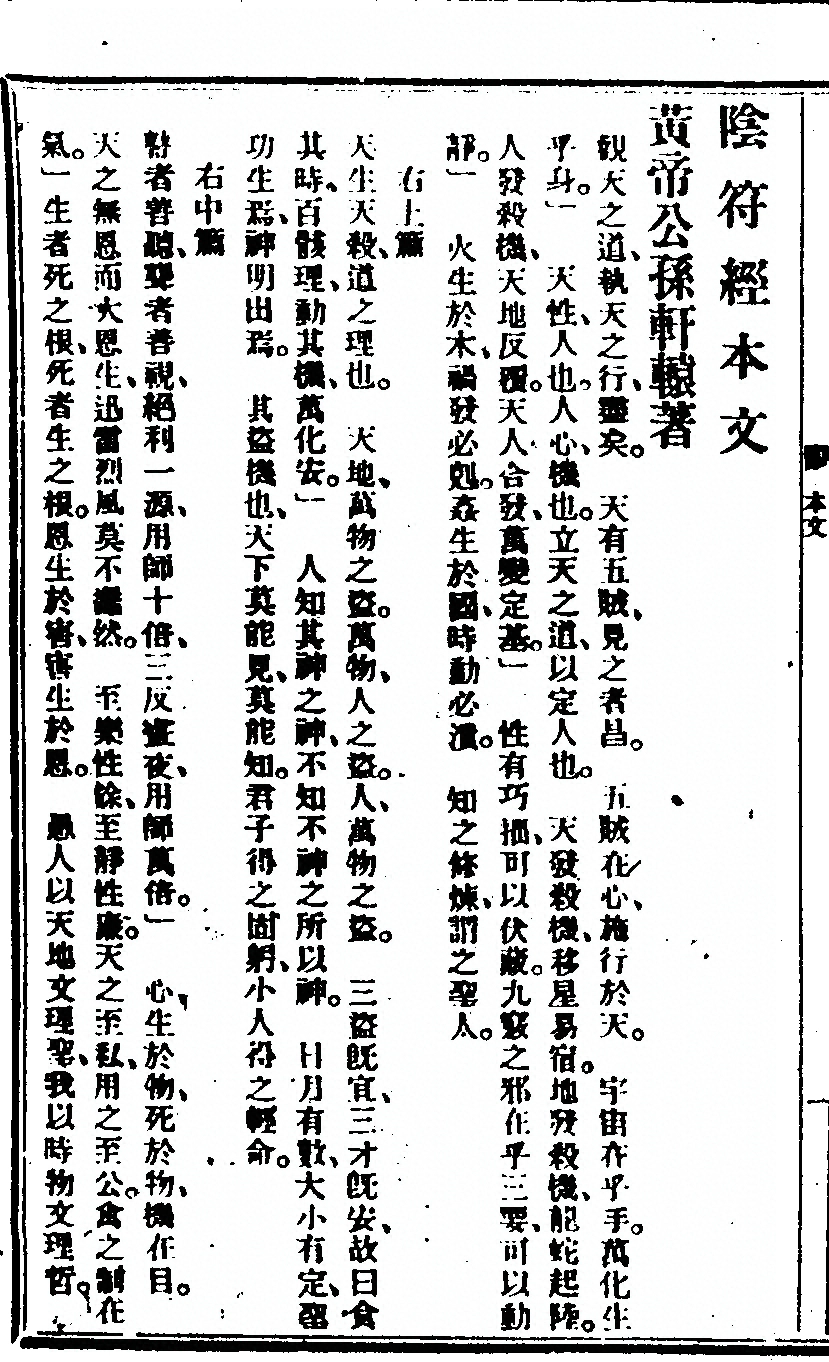 陰符經本文
黃帝公孫軒轅著
觀天之道、執天之行、盡矣。　天有五賊、見之者昌。　五賊在心、施行於天。　宇宙在乎手。萬化生
乎身。」　天性、人也、人心、機也。立天之道、以定人也。　天發殺機、移星易宿。地發殺機、龍蛇起陸。
人發殺機、天地反覆。天人合發、萬變定基。」　性有巧拙、可以伏藏。九竅之邪在乎三要、可以動
靜。」　火生於木、禍發必剋。姦生於國、時動必潰。　知之修煉、謂之聖人。
右上篇
天生天殺、道之理也。　天地、萬物之盜。萬物、人之盜。人、萬物之盜。　三盜旣宜、三才旣安、故曰食
其時、百骸理、動其機、萬化安。」　人知其神之神、不知不神之所以神。　日月有數、大小有定、聖
功生焉、神明出焉。　其盜機也、天下莫能見、莫能知。君子得之固躬、小人得之輕命。
右中篇
瞽者善聽、聾者善視、絕利一源、用師十倍、三反晝夜、用師萬倍。」　心生於物、死於物、機在目。
天之無恩而大恩生、迅雷烈風莫不蠢然。　至樂性餘、至靜性廉。天之至私、用之至公。禽之制在
氣。」生者死之根、死者生之根。恩生於害、害生於恩。　愚人以天地文理聖、我以時物文理哲。
本文
一